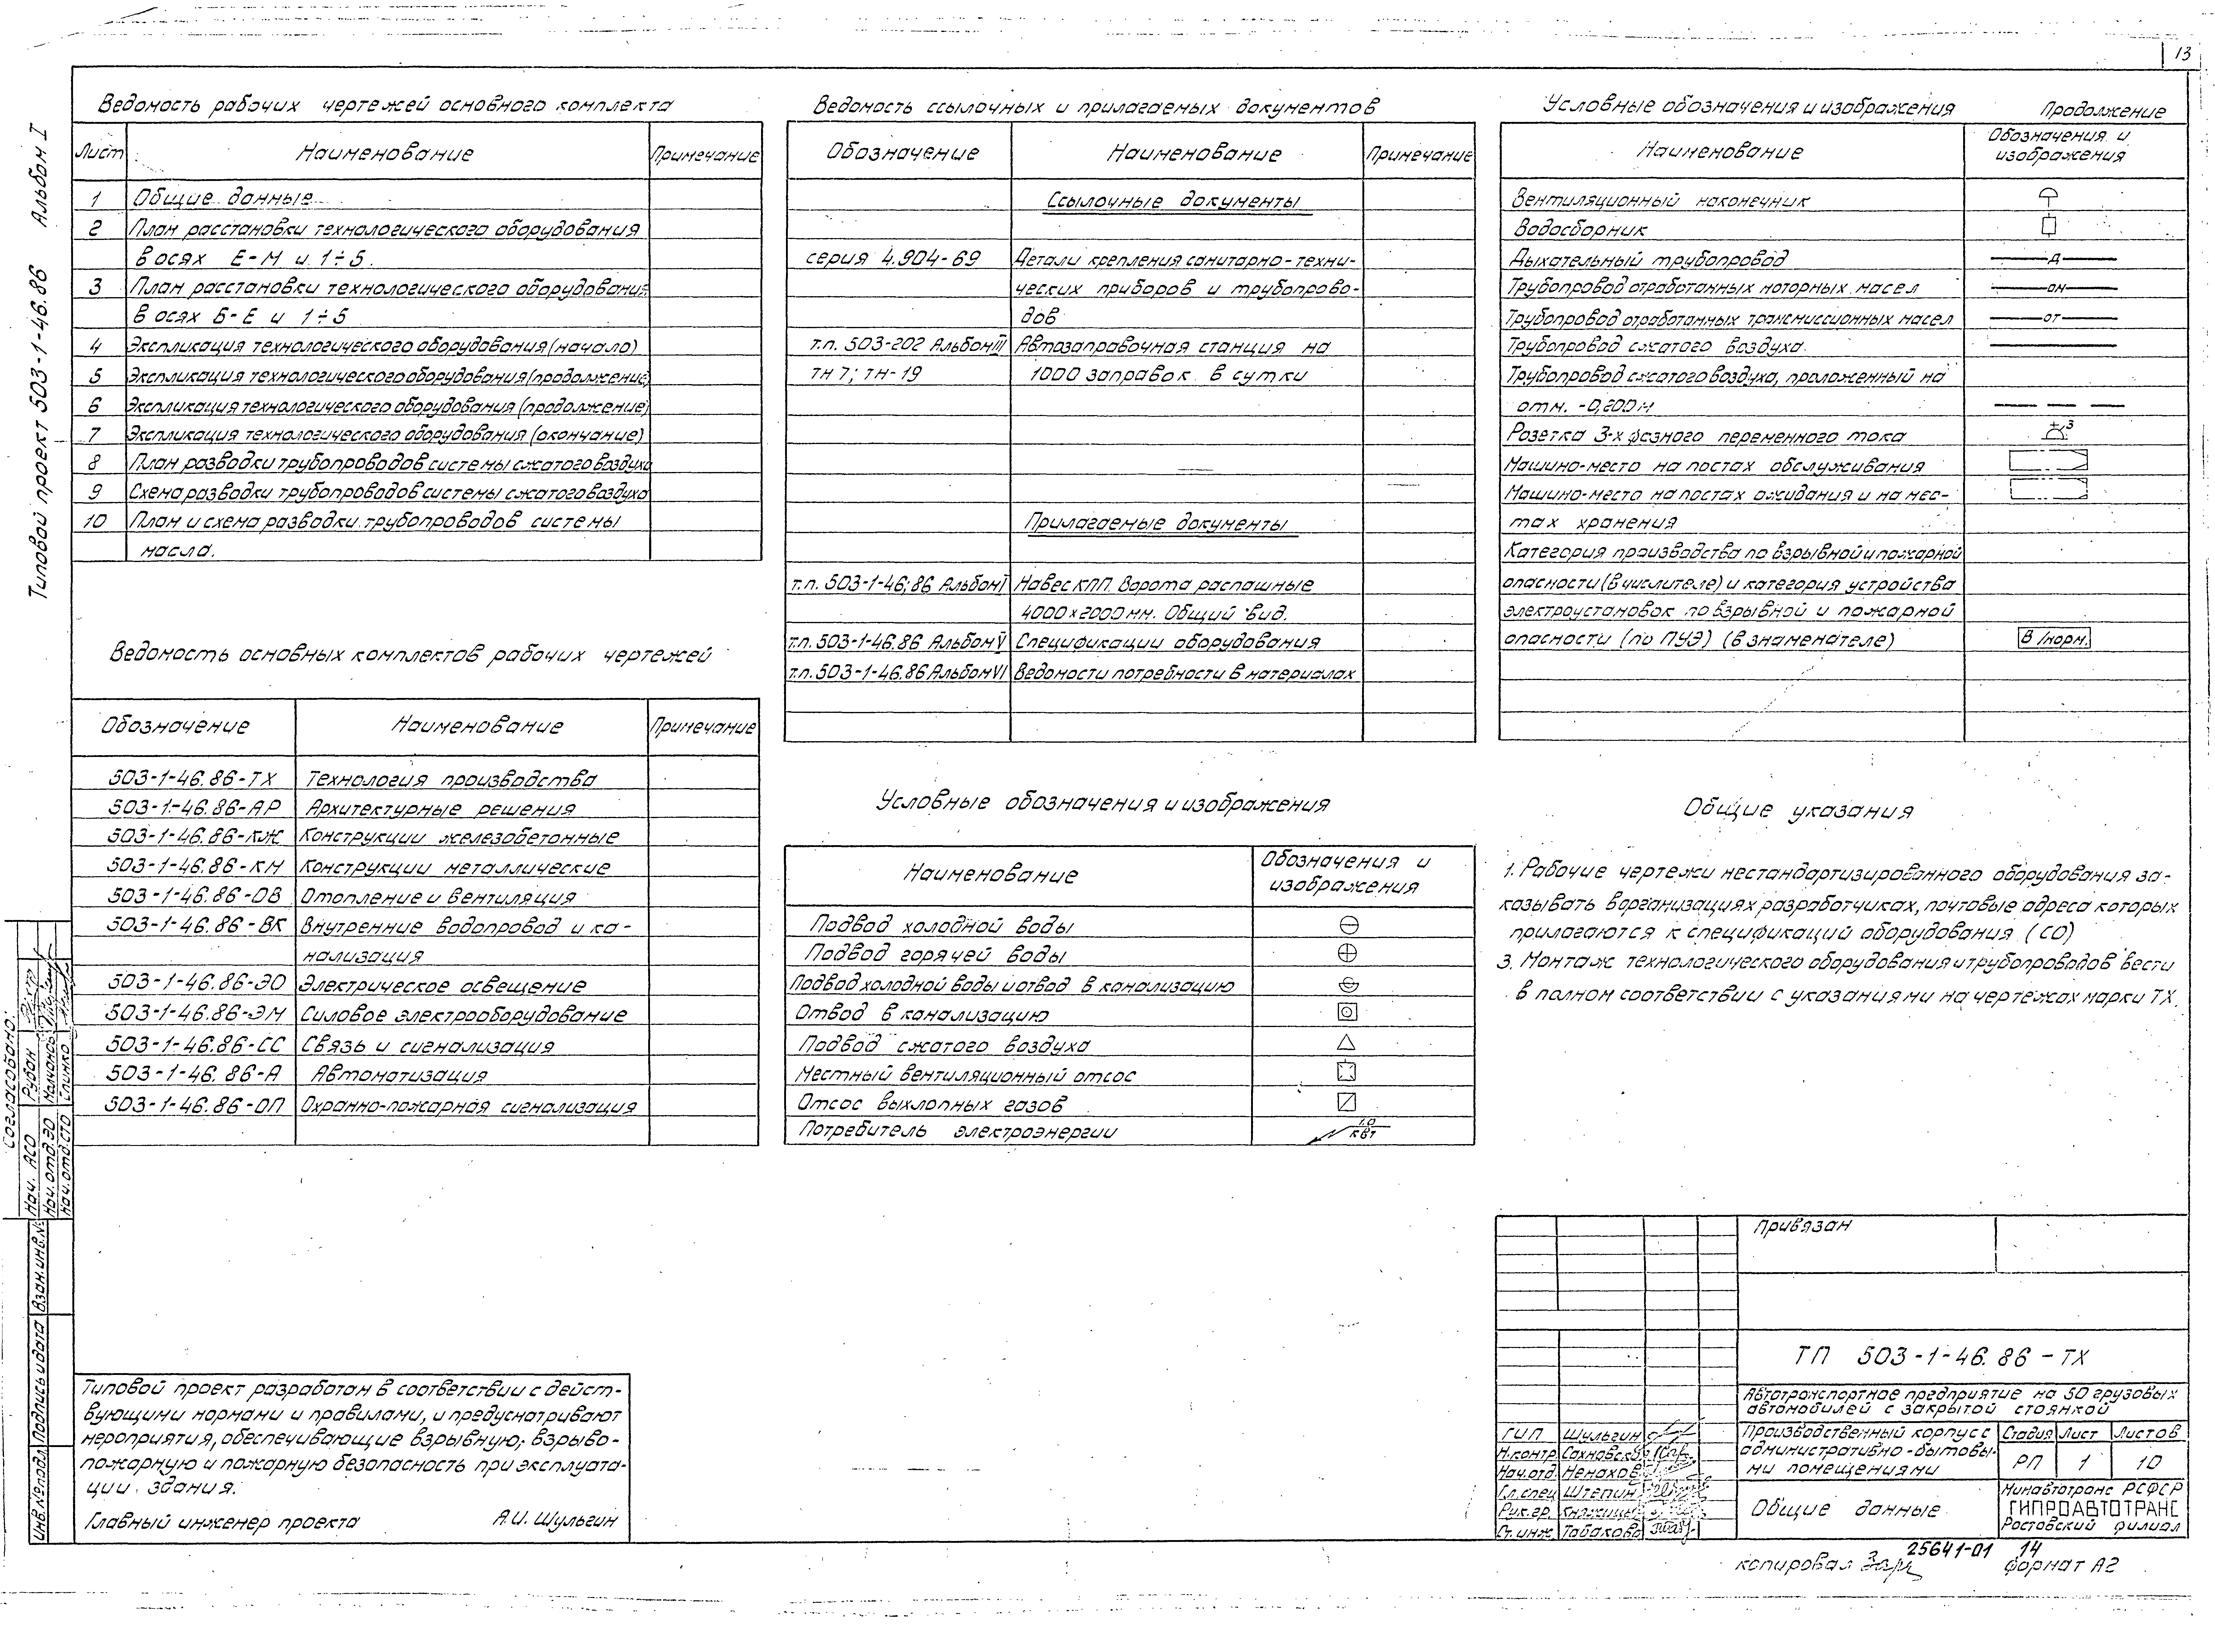 13
Альбом I
Типовой проект 503-1-46.86
Ведомость рабочих чертежей основного комплекта
Лист Наименование Примечание
1 Общие данные
2 План расстановки технологического оборудования
в осях Е-М и 1÷5.
3 План расстановки технологического оборудования
в осях Б-Е и 1÷5
4 Экспликация технологического оборудования (начало)
5 Экспликация технологического оборудования (продолжение)
6 Экспликация технологического оборудования (продолжение)
7 Экспликация технологического оборудования (окончание)
8 План разводки трубопроводов системы сжатого воздуха
9 Схема разводки трубопроводов системы сжатого воздуха
10 План и схема разводки трубопроводов системы
масла.
Ведомость основных комплектов рабочих чертежей
Обозначение Наименование Примечание
503-1-46.86-ТХ Технология производства
503-1-46.86-АР Архитектурные решения
503-1-46.86-КЖ Конструкции железобетонные
503-1-46.86-КМ Конструкции металлические
503-1-46.86-ОВ Отопление и вентиляция
503-1-46.86-ВК Внутренние водопровод и ка-
нализация
503-1-46.86-ЭО Электрическое освещение
503-1-46.86-ЭМ Силовое электрооборудование
503-1-46.86-СС Связь и сигнализация
503-1-46.86-А Автоматизация
503-1-46.86-ОП Охранно-пожарная сигнализация
Типовой проект разработан в соответствии с дейст-
вующими нормами и правилами, и предусматривают
мероприятия, обеспечивающие взрывную, взрыво-
пожарную и пожарную безопасность при эксплуата-
ции здания.
Главный инженер проекта А.И. Шульгин
Ведомость ссылочных и прилагаемых документов
Обозначение Наименование Примечание
Ссылочные документы
серия 4.904-69 Детали крепления санитарно-техни-
ческих приборов и трубопрово-
дов
т.п. 503-202 Альбом III Автозаправочная станция на
ТН 7; ТН-19 1000 заправок в сутки
Прилагаемые документы
т.п. 503-1-46;86 Альбом I Навес КПП. Ворота распашные
4000х2000мм. Общий вид.
т.п. 503-1-46.86 Альбом V Спецификации оборудования
т.п. 503-1-46.86 Альбом VI Ведомости потребности в материалах
Условные обозначения и изображения
Наименование Обозначения и
изображения
Подвод холодной воды
Подвод горячей воды
Подвод холодной воды и отвод в канализацию
Отвод в канализацию
Подвод сжатого воздуха
Местный вентиляционный отсос
Отсос выхлопных газов
Потребитель электроэнергии 1.0
кВт
Условные обозначения и изображения Продолжение
Наименование Обозначения и
изображения
Вентиляционный наконечник
Водосборник
Дыхательный трубопровод Д
Трубопровод отработанных моторных масел ОМ
Трубопровод отработанных трансмиссионных масел ОТ
Трубопровод сжатого воздуха
Трубопровод сжатого воздуха, проложенный на
отм. -0,200м
Розетка 3-х фазного переменного тока 3
Машино-место на постах обслуживания
Машино-место на постах ожидания и на мес-
тах хранения
Категория производства по взрывной и пожарной
опасности (в числителе) и категория устройства
электроустановок по взрывной и пожарной
опасности (по ПУЭ) (в знаменателе) В /норм.
Общие указания
1. Рабочие чертежи нестандартизированного оборудования за-
казывать в организациях разработчиках, почтовые адреса которых
прилагаются к спецификаций оборудования (СО)
3. Монтаж технологического оборудования и трубопроводов вести
в полном соответствии с указаниями на чертежах марки ТХ.
Привязан
ТП 503-1-46.86-ТХ
Автотранспортное предприятие на 50 грузовых
автомобилей с закрытой стоянкой
ГИП Шульгин
Н.контр.
Нач.отд.
Гл.спец Штепин
Рук.гр.
Ст.инж Табакова
Производственный корпус с
административно-бытовы-
ми помещениями
Стадия Лист Листов
РП 1 10
Общие данные
Минавтотранс РСФСР
ГИПРОАВТОТРАНС
Ростовский филиал
25641-01 14
копировал формат А2
Согласовано:
Нач. АСО Рубан
Нач.отд.ЭО
Нач.отд.СТО
Взам.инв.№
Подпись и дата
Инв.№ подл.